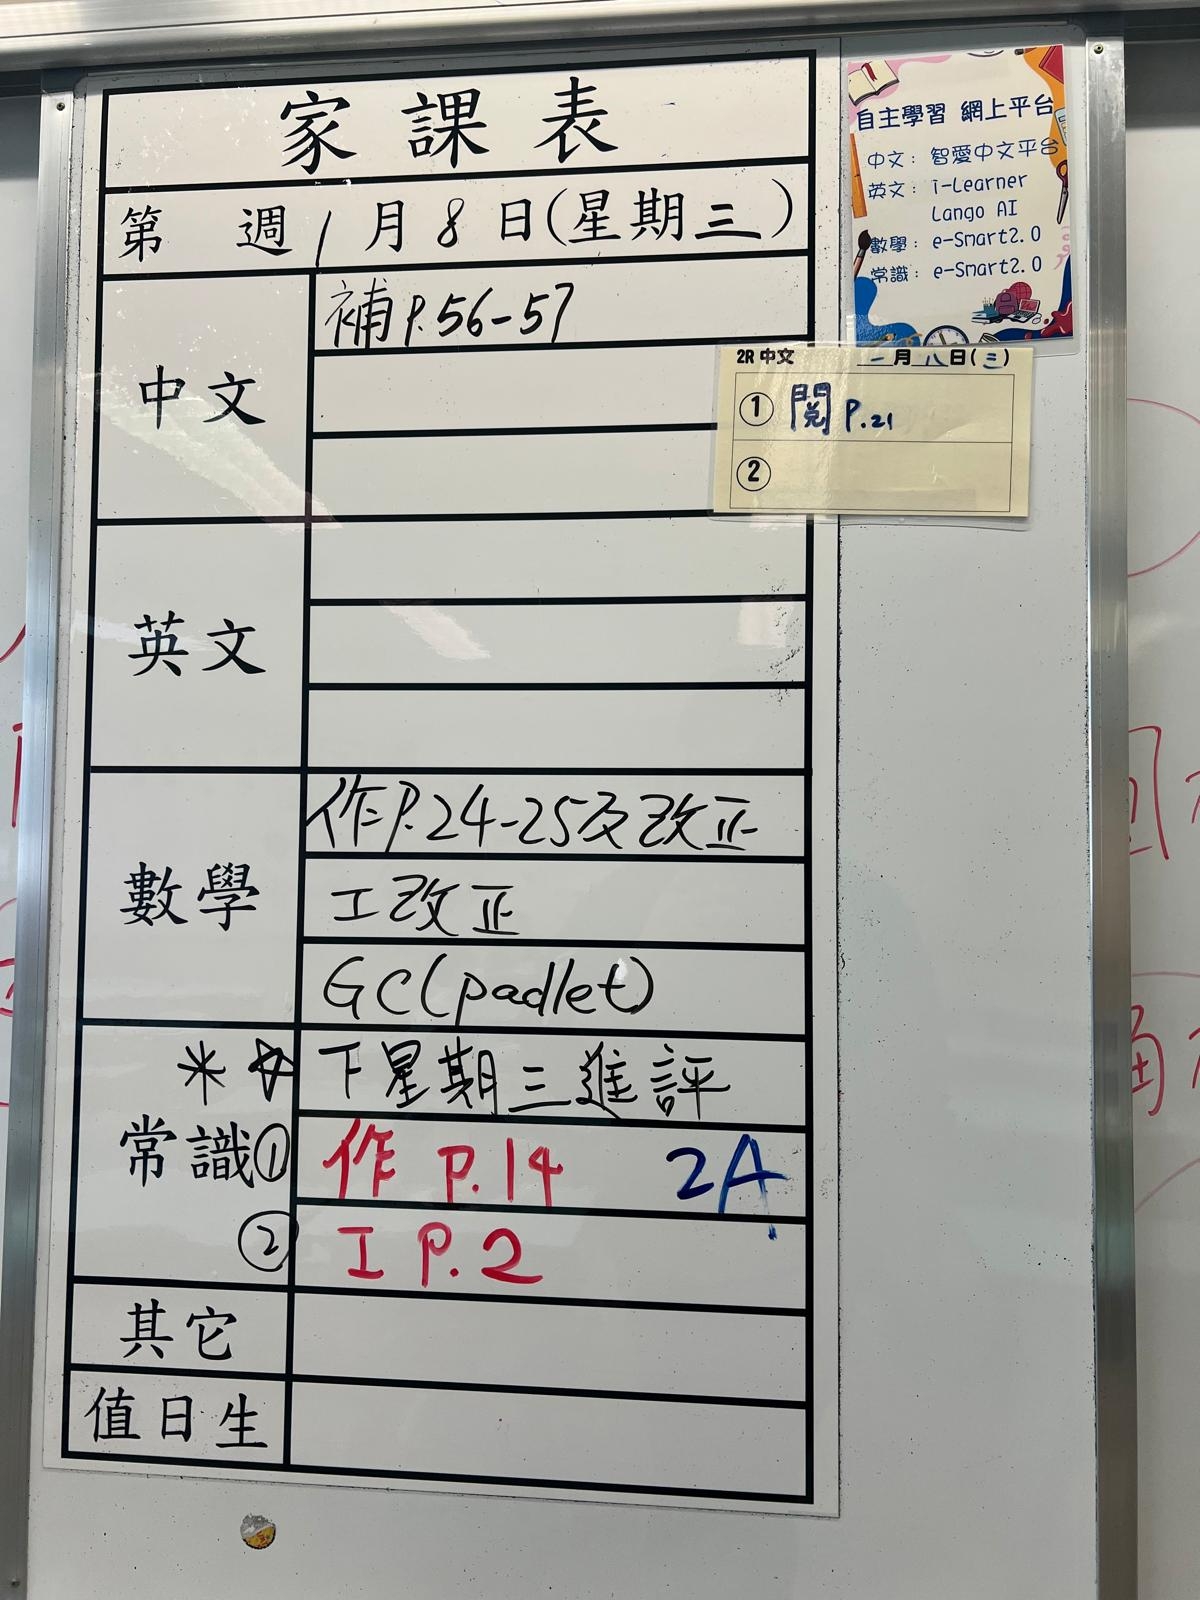 家課表
第 週 1月8日(星期三)
中文
補P.56-57
英文
數學
作P.24-25及改正
工改正
GC(padlet)
常識
下星期三進評
① 作 P.14 2A
② 工 P.2
其它
值日生
自主學習 網上平台
中文：智愛中文平台
英文：i-Learner
Lango AI
數學：e-Smart2.0
常識：e-Smart2.0
2R 中文 一月八日(三)
① 閱 P.21
②